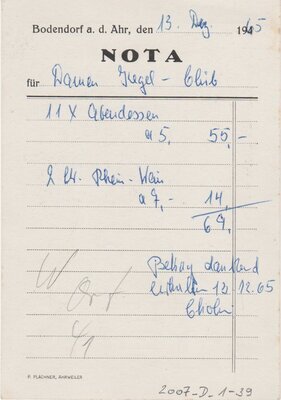 Bodendorf a. d. Ahr, den 13. Dez. 1965
NOTA
für Damen Kegel - Club
11 X Abendessen
a 5, 55,-
2 Ltr. Rhein-Wein
a 7,- 14,
69,
Betrag dankend
erhalten 12.12.65
P. PLACHNER, AHRWEILER
2007-D-1-39